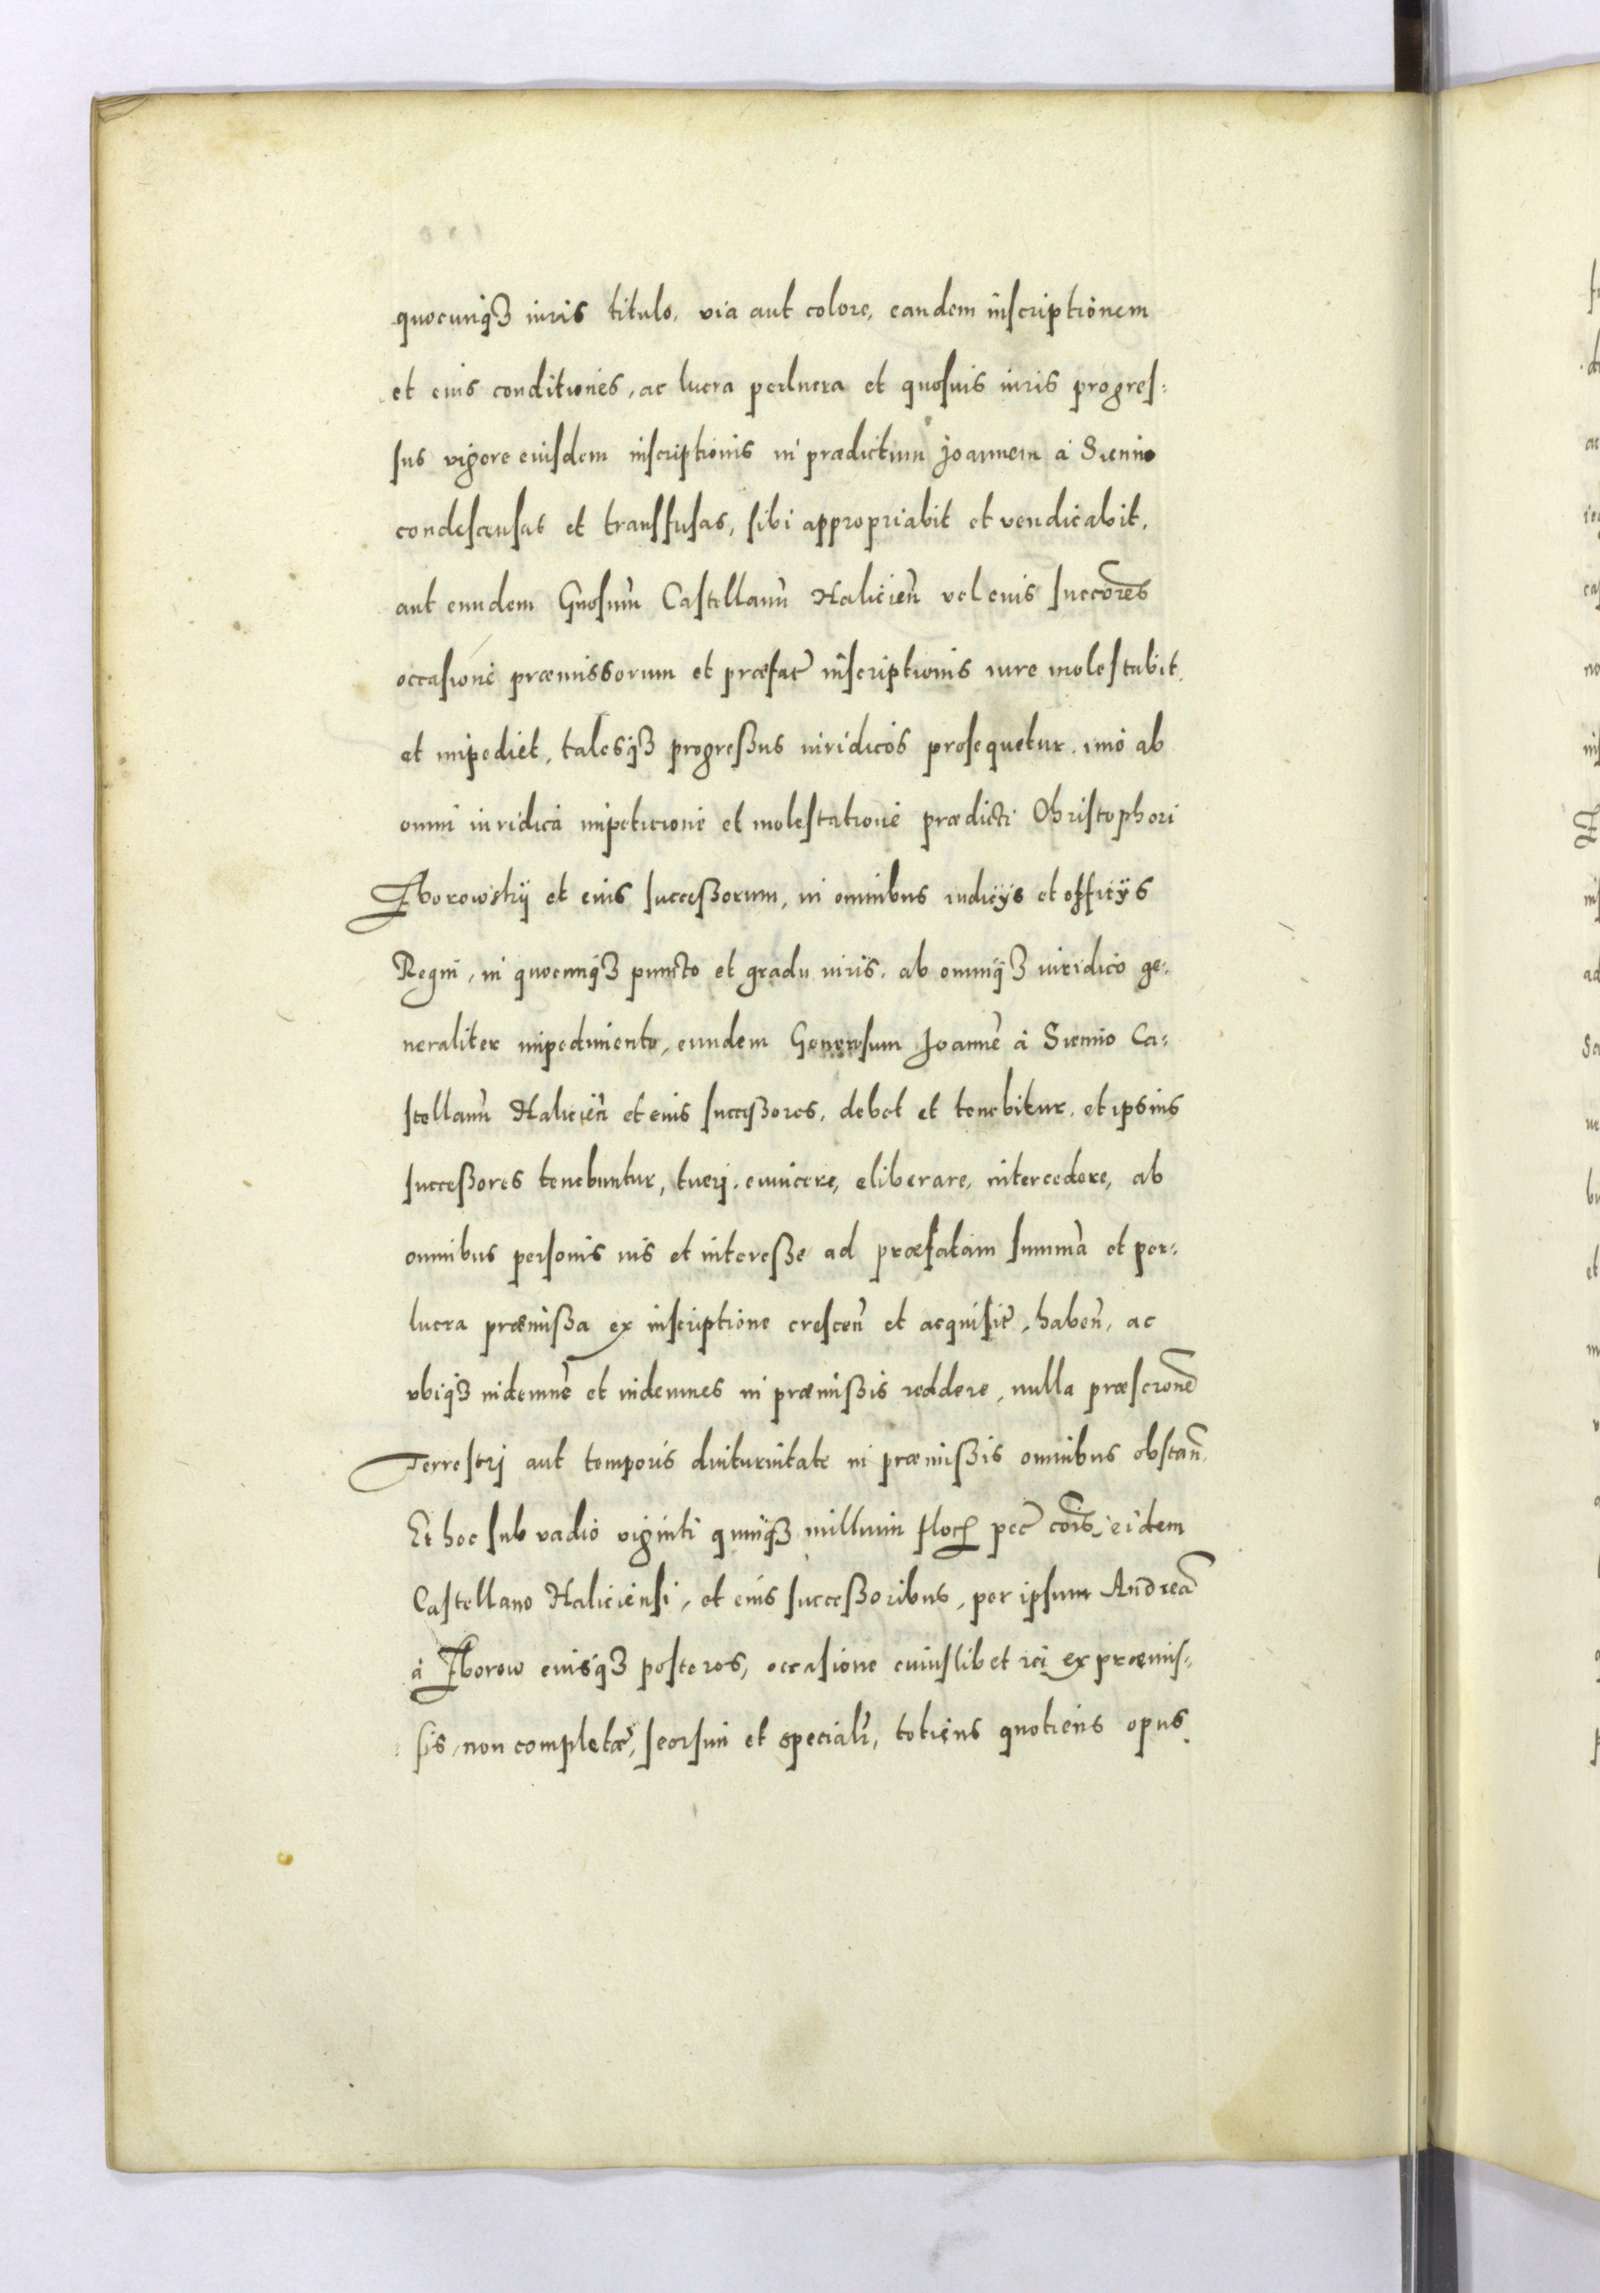 quocunqȝ iuris titulo, via aut colore, eandem inscriptionem
et eius conditiones, ac lucra perlucra et quosuis iuris progres:
sus vigore eiusdem inscriptionis in prædictum Joannem à Sienno
condescensas et transfusas, sibi appropriabit et vendicabit,
aut eundem Gnosum̃ Castellanũ Halicień vel eius succõres
occasione præmissorum et præfat̃ inscriptionis iure molestabit
et impediet, talesqȝ progreßus iuridicos prosequetur. imò ab
omni iuridica impeticione et molestatione prædicti Christophori
Zborowskij et eius succeßorum, in omnibus iudicijs et officijs
Regni, in quocunqȝ puncto et gradu iuris, ab omniqȝ iuridico ge:
neraliter impedimento, eundem Generosum Joannẽ à Sienno Ca:
stellanũ Halicień et eius succeßores, debet et tenebitur, et ipsius
succeßores tenebuntur, tueri, euincere, eliberare, intercedere, ab
omnibus personis ius et intereße ad præfatam summã et per:
lucra præmißa ex inscriptione crescen̄ et acquisit̃, haben̄, ac
vbiqȝ indemnẽ et indemnes in præmißis reddere, nulla præscrõne
Terrestri aut temporis diuturnitate in præmißis omnibus obstan̄.
Et hoc sub vadio viginti quinqȝ millium floꝝ pec̃ cõis, eidem
Castellano Haliciensi, et eius succeßoribus, per ipsum Andreã
à Zborow eiusqȝ posteros, occasione cuiuslibet rei ex præmis:
sis, non completæ, seorsim et speciali͂, totiens quotiens opus